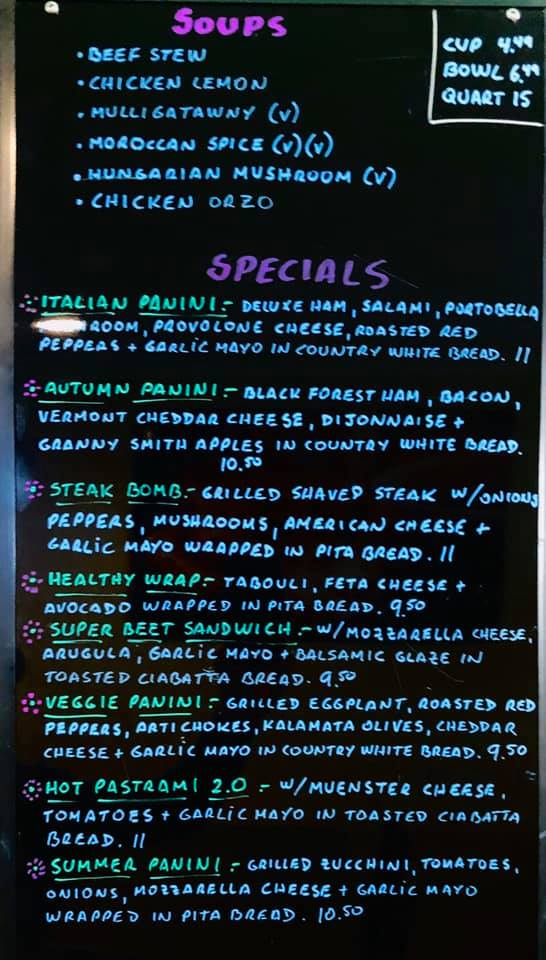 SOUPS
CUP 4.49
BOWL 6.49
QUART 15
• BEEF STEW
• CHICKEN LEMON
• MULLIGATAWNY (V)
• MOROCCAN SPICE (V)(V)
• HUNGARIAN MUSHROOM (V)
• CHICKEN ORZO
SPECIALS
ITALIAN PANINI:- DELUXE HAM, SALAMI, PORTOBELLA
ROOM, PROVOLONE CHEESE, ROASTED RED
PEPPERS + GARLIC MAYO IN COUNTRY WHITE BREAD. 11
AUTUMN PANINI:- BLACK FOREST HAM, BACON,
VERMONT CHEDDAR CHEESE, DIJONNAISE +
GRANNY SMITH APPLES IN COUNTRY WHITE BREAD.
10.50
STEAK BOMB:- GRILLED SHAVED STEAK W/ONIONS
PEPPERS, MUSHROOMS, AMERICAN CHEESE +
GARLIC MAYO WRAPPED IN PITA BREAD. 11
HEALTHY WRAP:- TABOULI, FETA CHEESE +
AVOCADO WRAPPED IN PITA BREAD. 9.50
SUPER BEET SANDWICH:- W/MOZZARELLA CHEESE,
ARUGULA, GARLIC MAYO + BALSAMIC GLAZE IN
TOASTED CIABATTA BREAD. 9.50
VEGGIE PANINI:- GRILLED EGGPLANT, ROASTED RED
PEPPERS, ARTICHOKES, KALAMATA OLIVES, CHEDDAR
CHEESE + GARLIC MAYO IN COUNTRY WHITE BREAD. 9.50
HOT PASTRAMI 2.0:- W/MUENSTER CHEESE,
TOMATOES + GARLIC MAYO IN TOASTED CIABATTA
BREAD. 11
SUMMER PANINI:- GRILLED ZUCCHINI, TOMATOES,
ONIONS, MOZZARELLA CHEESE + GARLIC MAYO
WRAPPED IN PITA BREAD. 10.50